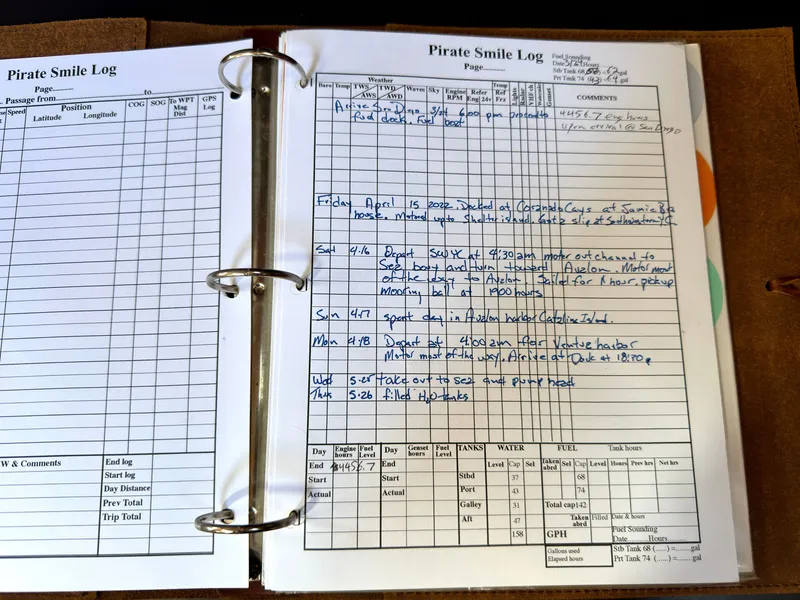 Pirate Smile Log
Page
Passage from to
Speed Position COG SOG To WPT GPS
Latitude Longitude Mag Log
Dist
W & Comments
End log
Start log
Day Distance
Prev Total
Trip Total
Pirate Smile Log
Page
Fuel Sounding
Date Hours
Stb Tank 68 gal
Prt Tank 74 gal
Weather
Baro Temp TWS TWD Waves Sky Engine Refer Temp COMMENTS
AWS AWD RPM Eng/24v Ref
Frz
Arrive San Diego 6:00 pm proceed to
fuel dock. Fuel boat
4456.7 eng hours
upon arrival @ San Diego
Friday April 15 2022. Docked at Coronado Cays at Jamie
house. Motored up to Shelter island. Got a slip at Southwestern YC
Sat 4.16 Depart SWYC at 4:30 am motor out channel to
Sea bouy and turn toward Avalon. Motor most
of the way to Avalon. Sailed for 1 hour. pickup
mooring ball at 1900 hours
Sun 4.17 spent day in Avalon harbor Catalina Island.
Mon 4.18 Depart at 4:00 am for Ventura harbor
Motor most of the way. Arrive at Dock at
Wed 5.25 take out to sea and pump head
Thus 5.26 filled H2O tanks
Day Engine hours Fuel Level Day Genset hours Fuel Level TANKS WATER FUEL Tank hours
Level Cap Sel Taken abrd Sel Cap Level Hours Prev hrs Net hrs
End 4456.7 End
Start Start Stbd 37 68
Actual Actual Port 43 74
Galley 31 Total cap 142
Aft 47 Taken abrd Filled Date & hours
158 GPH
Fuel Sounding
Date Hours
Gallons used
Elapsed hours
Stb Tank 68 (.....) =.......gal
Prt Tank 74 (.....) =.......gal